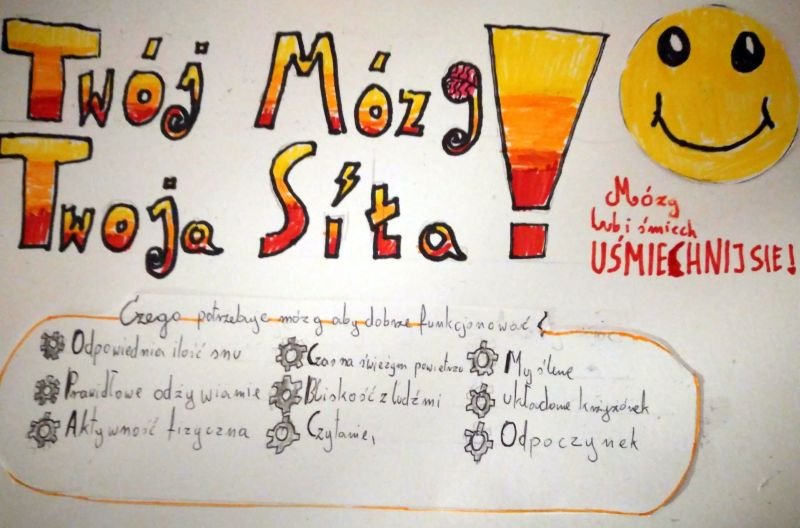 Twój Mózg
Twoja Siła!
Mózg
lubi śmiech
UŚMIECHNIJ SIE!
Czego potrzebuje mózg aby dobrze funkcjonować?
Odpowiednia ilość snu
Prawidłowe odżywianie
Aktywność fizyczna
Czas na świeżym powietrzu
Bliskość z ludźmi
Czytanie,
Myślenie
układanie krzyżówek
Odpoczynek